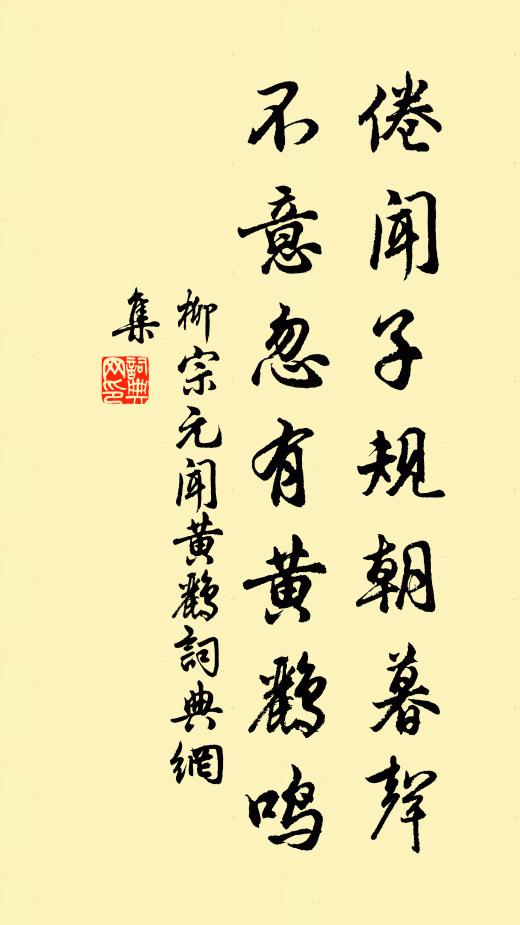 倦闻子规朝暮声
不意忽有黄鹂鸣
柳宗元闻黄鹂詞典網
集
詞典网印